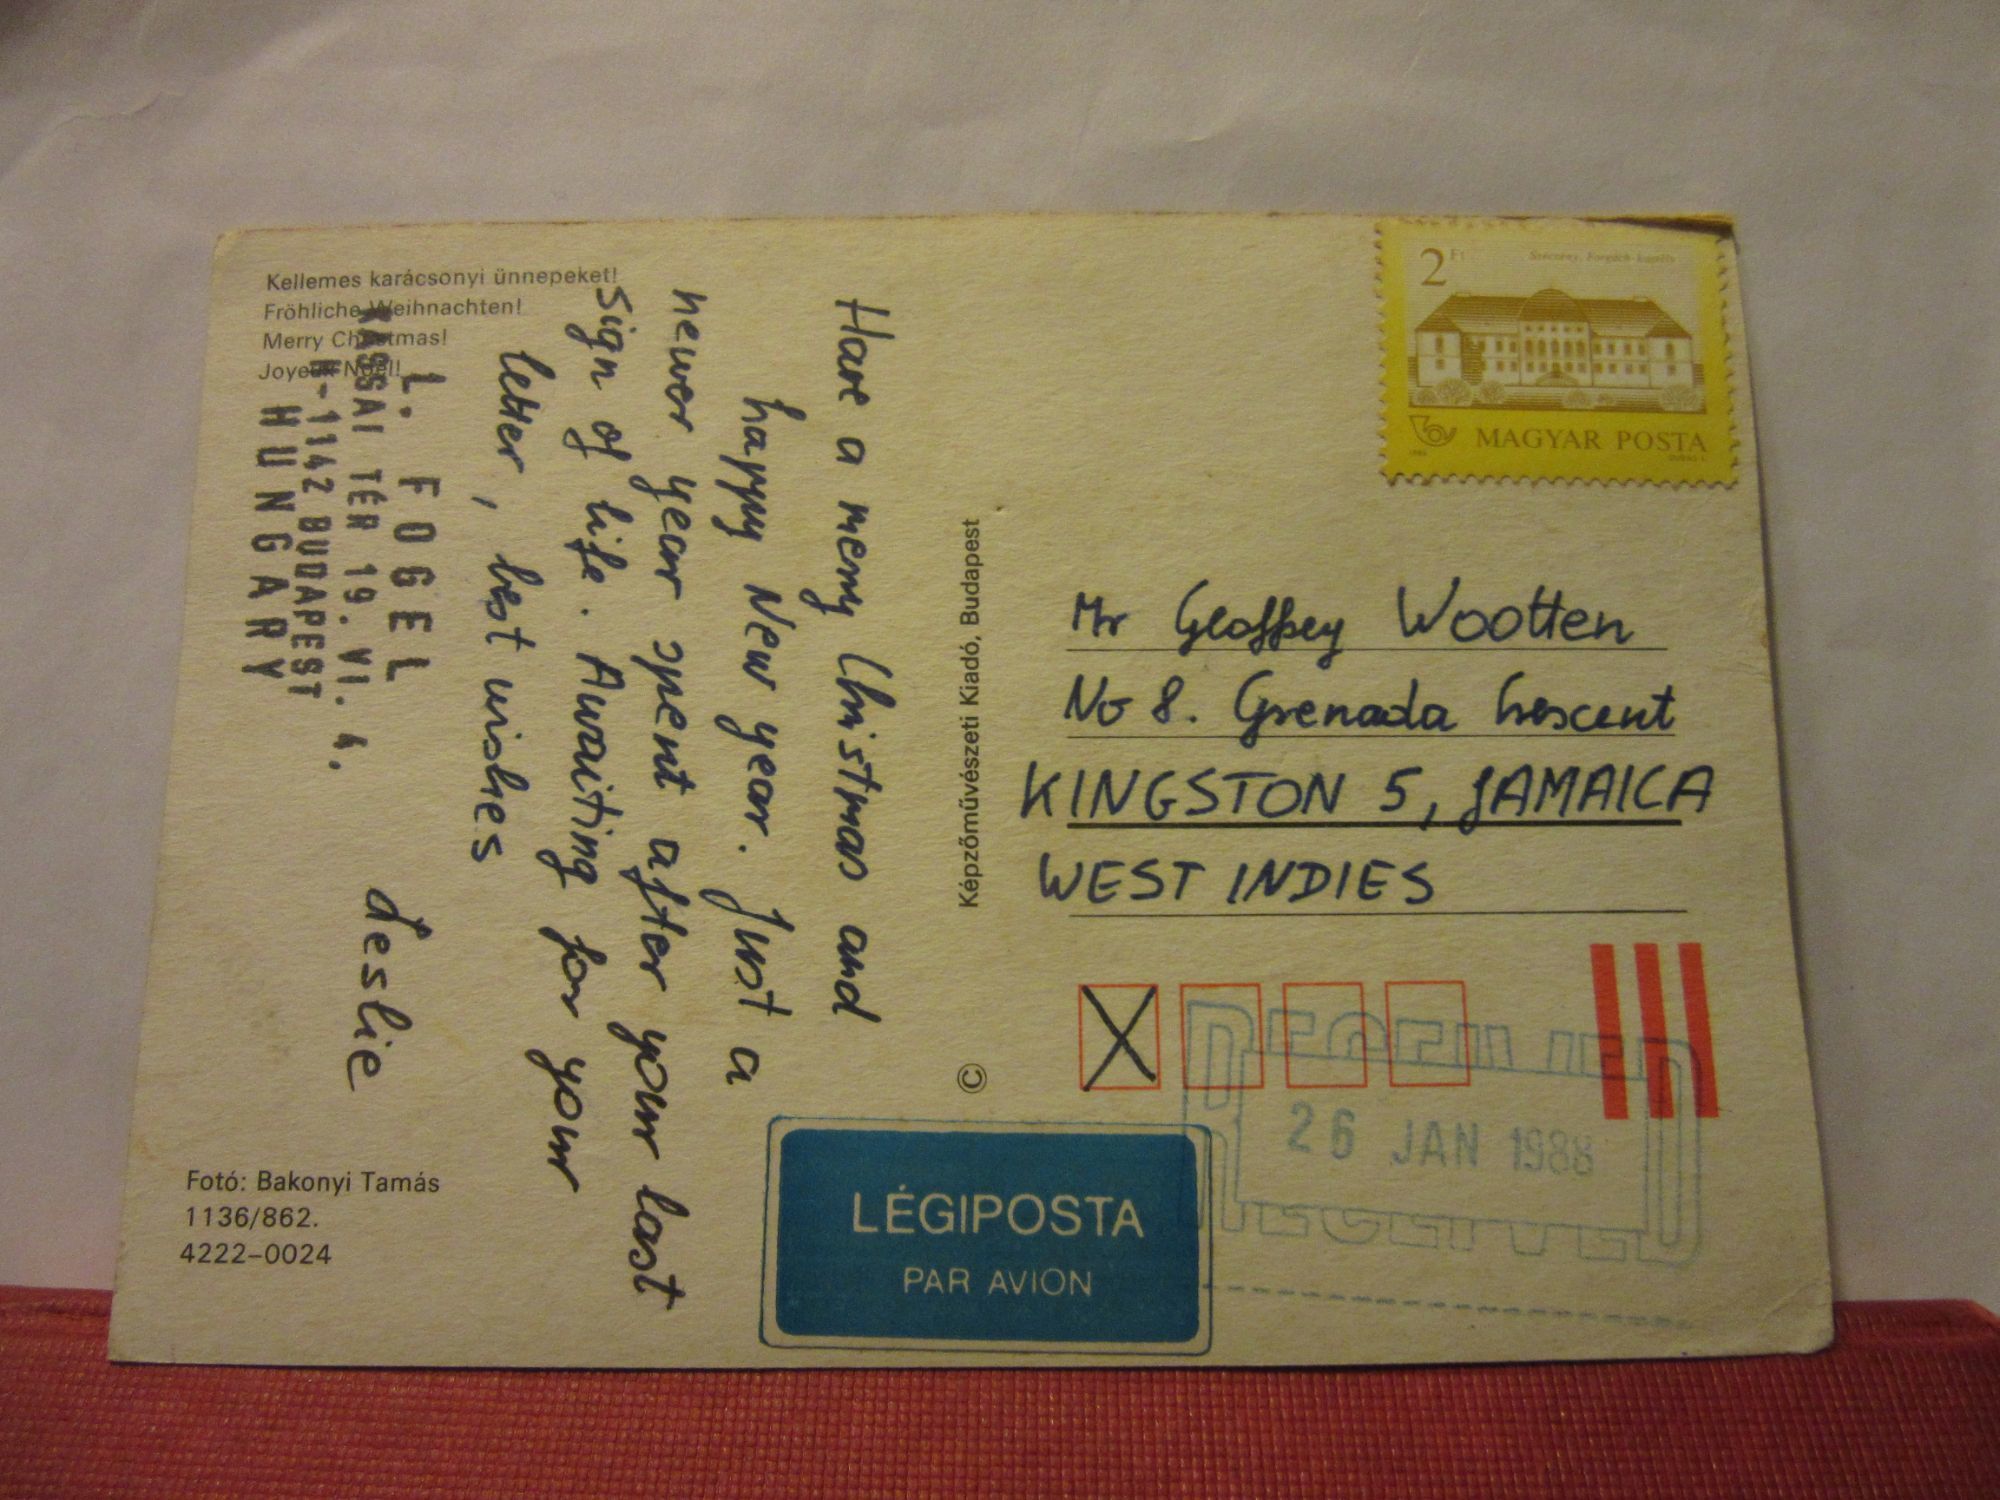 Kellemes karácsonyi ünnepeket!
Fröhliche Weihnachten!
Merry Christmas!
Joyeux Noël!
L. FOGEL
KASSAI TÉR 19. VI. 4.
H-1142 BUDAPEST
HUNGARY
Have a merry Christmas and
happy New year. Just a
newer year spent after your last
sign of life. Awaiting for your
letter, best wishes
Leslie
Fotó: Bakonyi Tamás
1136/862.
4222-0024
Képzőművészeti Kiadó, Budapest
©
2 Ft
Szécsény, Forgách-kastély
MAGYAR POSTA
Mr Geoffrey Wootten
No 8. Grenada Crescent
KINGSTON 5, JAMAICA
WEST INDIES
RECEIVED
26 JAN 1988
RECEIVED
LÉGIPOSTA
PAR AVION